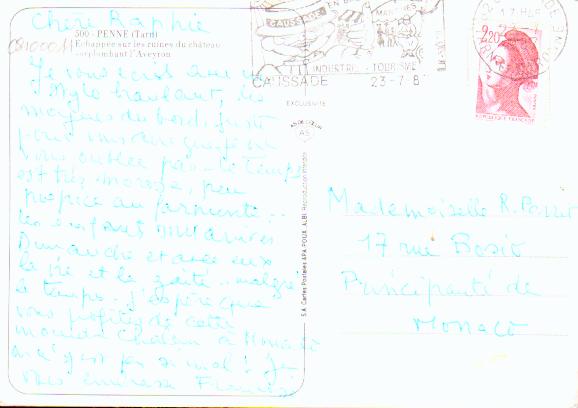 Chère Raphie
500 - PENNE (Tarn)
Echappée sur les ruines du château
surplombant l'Aveyron
Je vous écris avec un
stylo
du bord, juste
pour vous dire que je ne
vous oublie pas - le temps
est très morose, peu
propice au farniente..
les enfants
Dimanche et avec eux
la vie et la gaité - malgré
le temps - J'espère que
vous profitez de cette
château à Monaco
n'est pas si mal ! Je
vous embrasse
CAUSSADE
INDUSTRIE - TOURISME
CAUSSADE 23-7-8
EXCLUSIVITE
AS DE CŒUR
AS
S.A. Cartes Postales APA POUX, ALBI Reproduction interdite
17H
2,20
REPUBLIQUE FRANÇAISE
Mademoiselle R.
17 rue Bosio
Principauté de
Monaco